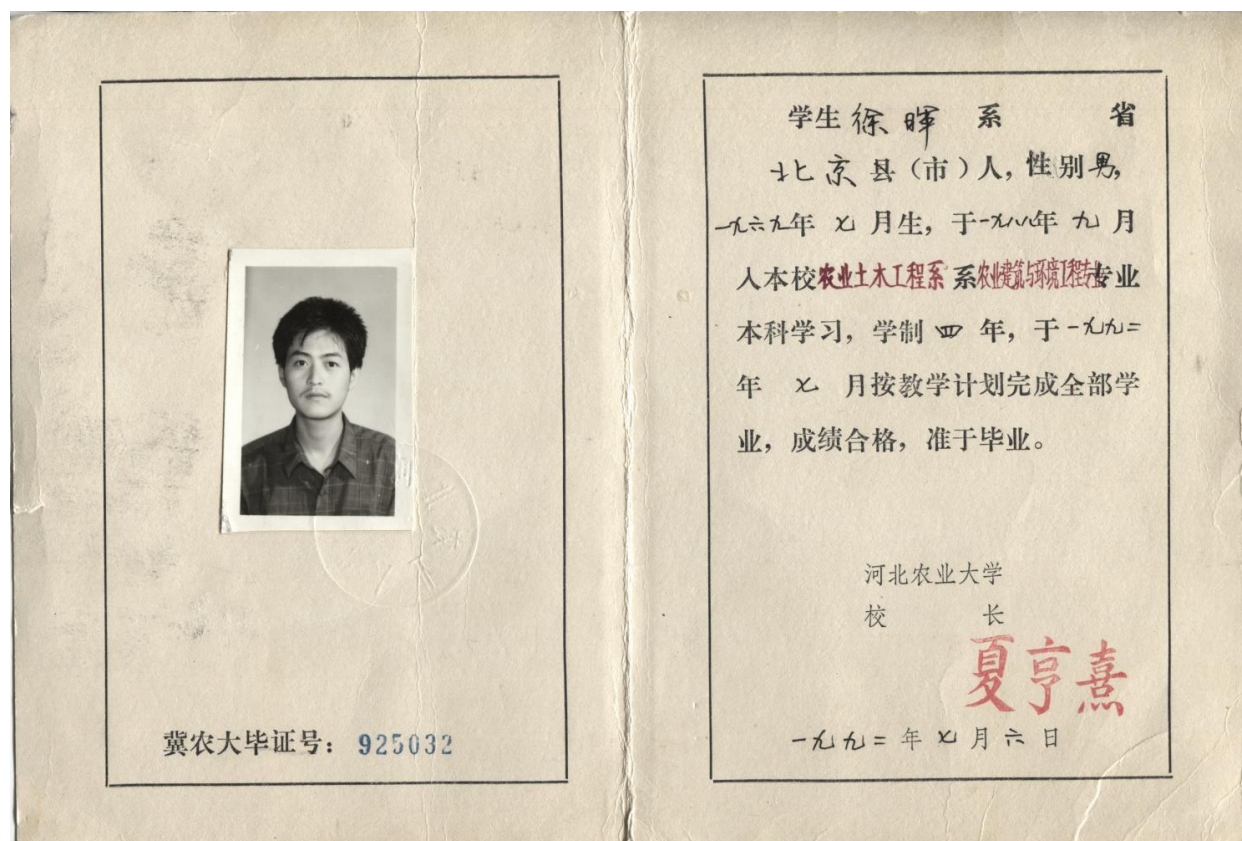 冀农大毕证号：925032
学生徐晖系 省
北京县（市）人，性别男，
一九六九年七月生，于一九八八年九月
入本校农业土木工程系系农业建筑与环境工程专业专业
本科学习，学制四年，于一九九二
年七月按教学计划完成全部学
业，成绩合格，准于毕业。
河北农业大学
校 长
夏亨熹
一九九二年七月六日